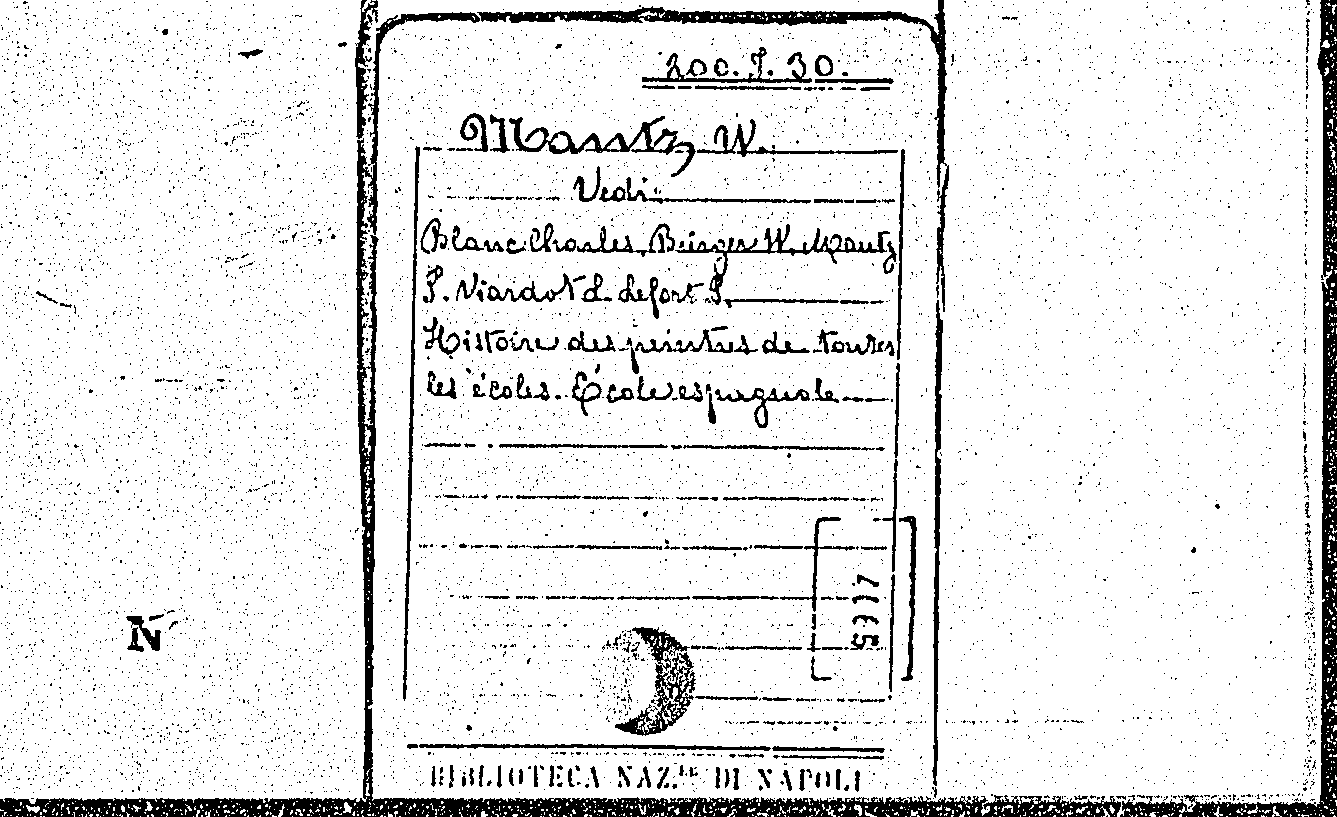 200. J. 30.
Mantz, W.
Vedi:
Blanc Charles, Bürger W. Mantz
P. Viardot L. Lefort P.
Histoire des peintres de toutes
les écoles. École espagnole
BIBLIOTECA NAZ.le DI NAPOLI
N